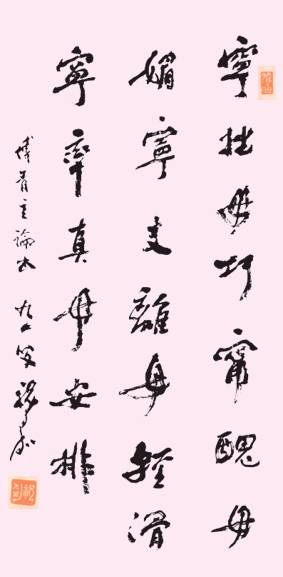 寧拙毋巧甯醜毋
媚寧支離毋輕滑
寧率真毋安排
傅青主論書